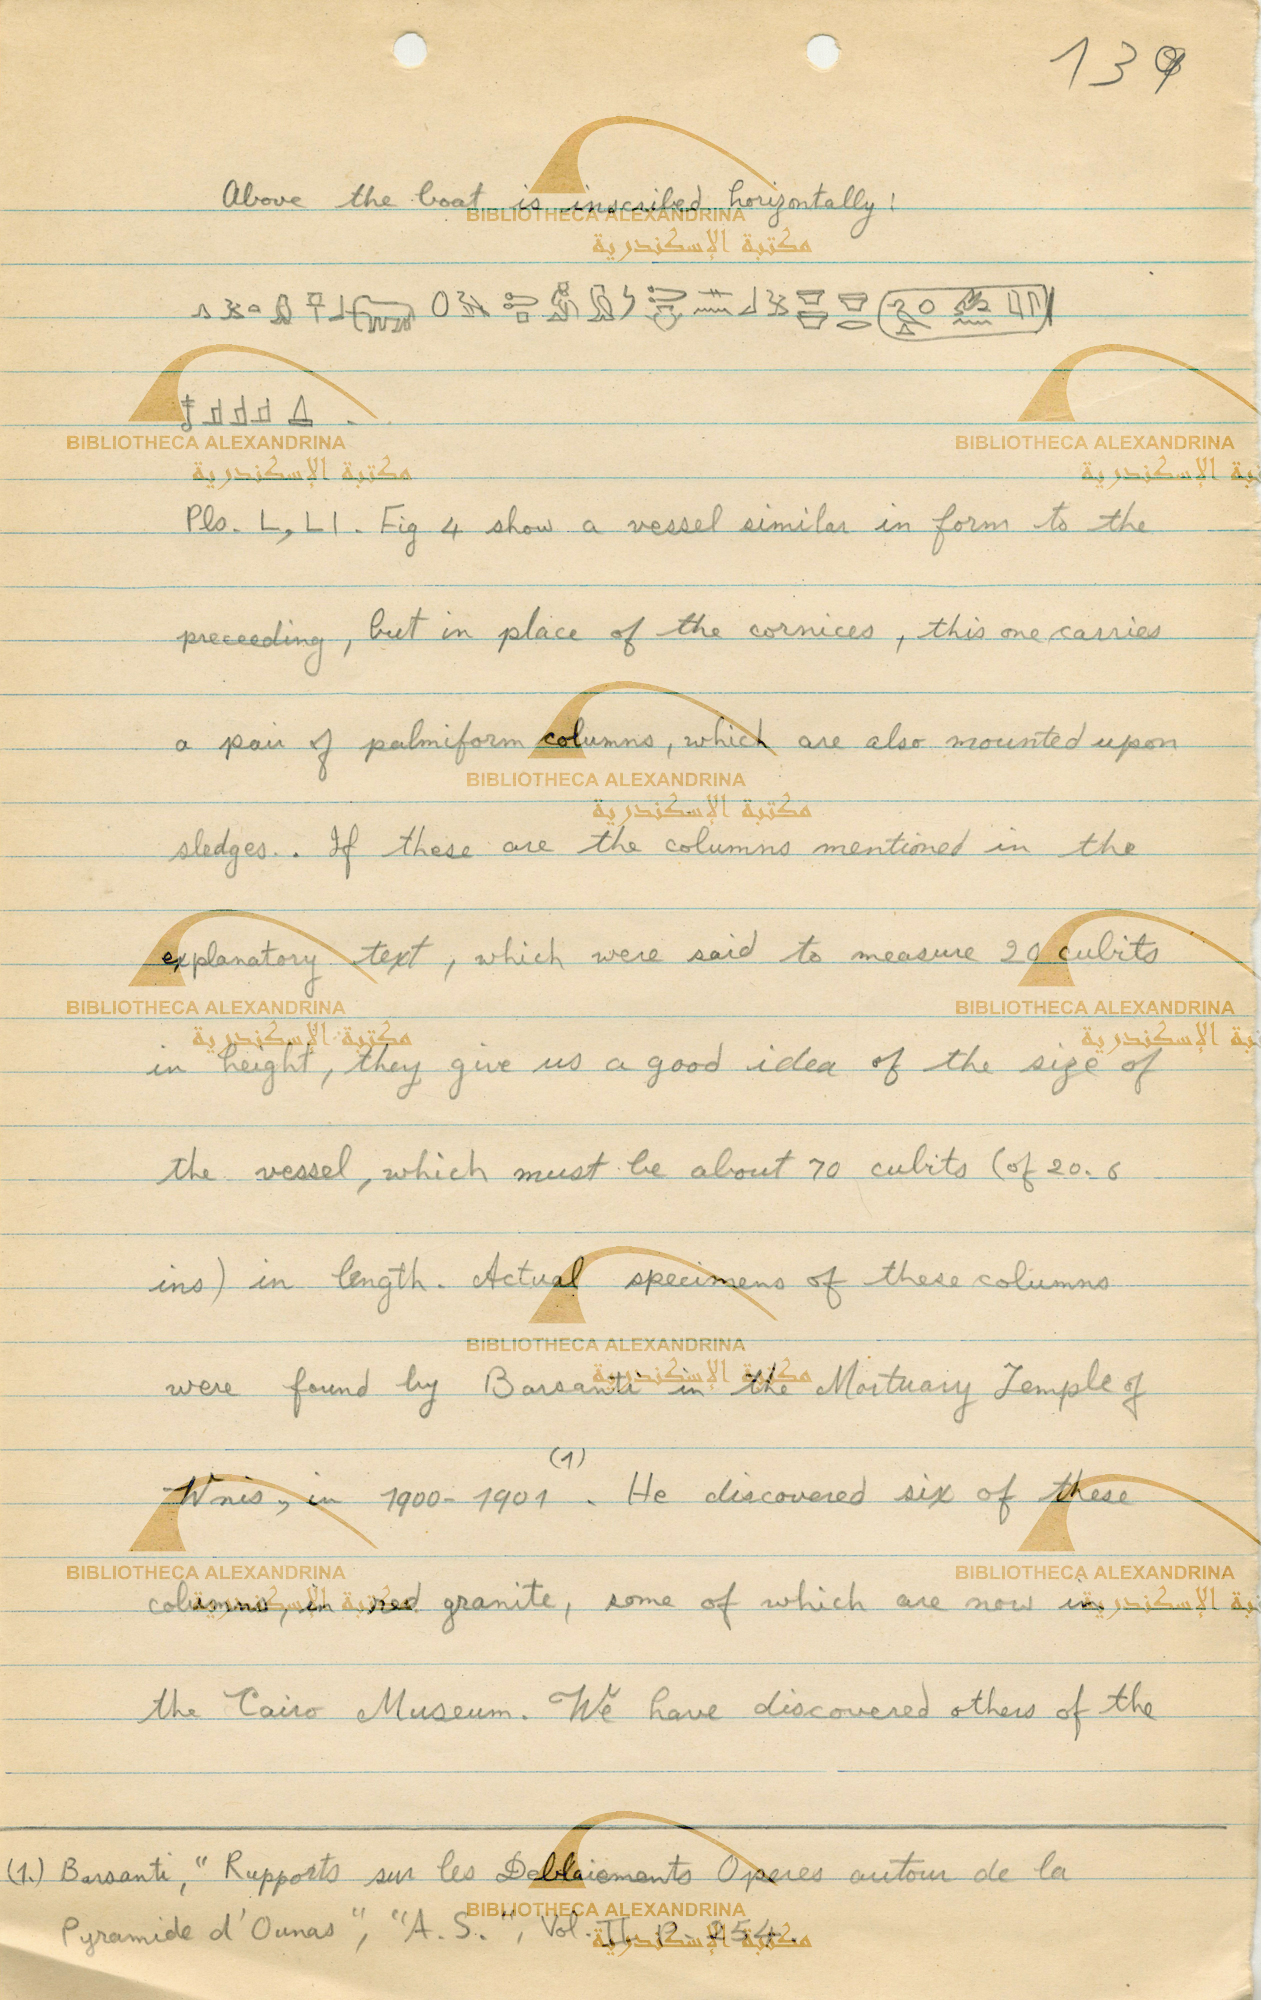 139
Above the boat is inscribed horizontally:
Pls. L, LI. Fig 4 show a vessel similar in form to the
preceeding, but in place of the cornices, this one carries
a pair of palmiform columns, which are also mounted upon
sledges.. If these are the columns mentioned in the
explanatory text, which were said to measure 20 cubits
in height, they give us a good idea of the size of
the vessel, which must be about 70 cubits (of 20.6
ins) in length. Actual specimens of these columns
were found by Barsanti in the Mortuary Temple of
Wnis, in 1900-1901 (1). He discovered six of these
columns, in red granite, some of which are now in
the Cairo Museum. We have discovered others of the
(1.) Barsanti, "Rupports sur les Deblaiements Operes autour de la
Pyramide d'Ounas", "A. S.", Vol. II P. 254.
BIBLIOTHECA ALEXANDRINA
مكتبة الإسكندرية